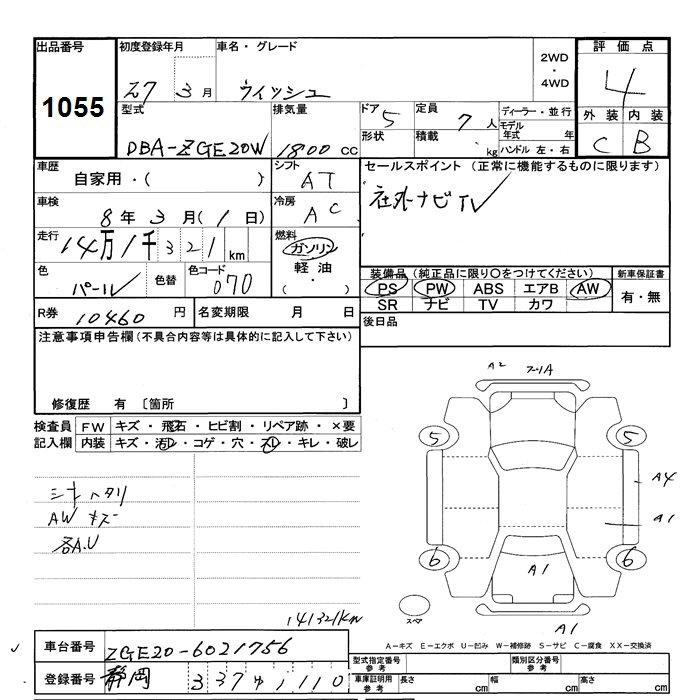 出品番号 初度登録年月 車名・グレード 評価点
1055 27 3月 ウィッシュ 2WD・4WD 4
型式 排気量 ドア 5 定員 7人 ディーラー・並行 外装 内装
形状 積載 kg モデル年式 年
DBA-ZGE20W 1800 cc ハンドル 左・右 C B
車歴 シフト セールスポイント (正常に機能するものに限ります)
自家用・( ) AT 社外ナビTV
車検 8年3月(1日) 冷房 AC
走行 14万1千321km 燃料 ガソリン
軽油
( ・ )
色 パール 色替 色コード 070
装備品(純正品に限り○をつけてください) 新車保証書
PS PW ABS エアB AW 有・無
SR ナビ TV カワ
R券 10460円 名変期限 月 日 後日品
注意事項申告欄(不具合内容等は具体的に記入して下さい)
修復歴 有 〔箇所 〕
検査員 FW キズ・飛石・ヒビ割・リペア跡・×要
記入欄 内装 キズ・汚レ・コゲ・穴・スレ・キレ・破レ
A2
5 5
A4
シートヘタリ
AW キズ A1
各A.U
6 6
A1
スペア
141321km
A1
A−キズ E−エクボ U−凹み W−補修跡 S−サビ C−腐食 XX−交換済
車台番号 ZGE20-6021756
型式指定番号 参考 類別区分番号 参考
登録番号 静岡 337 110
車庫証明用 参考 長さ cm 幅 cm 高さ cm